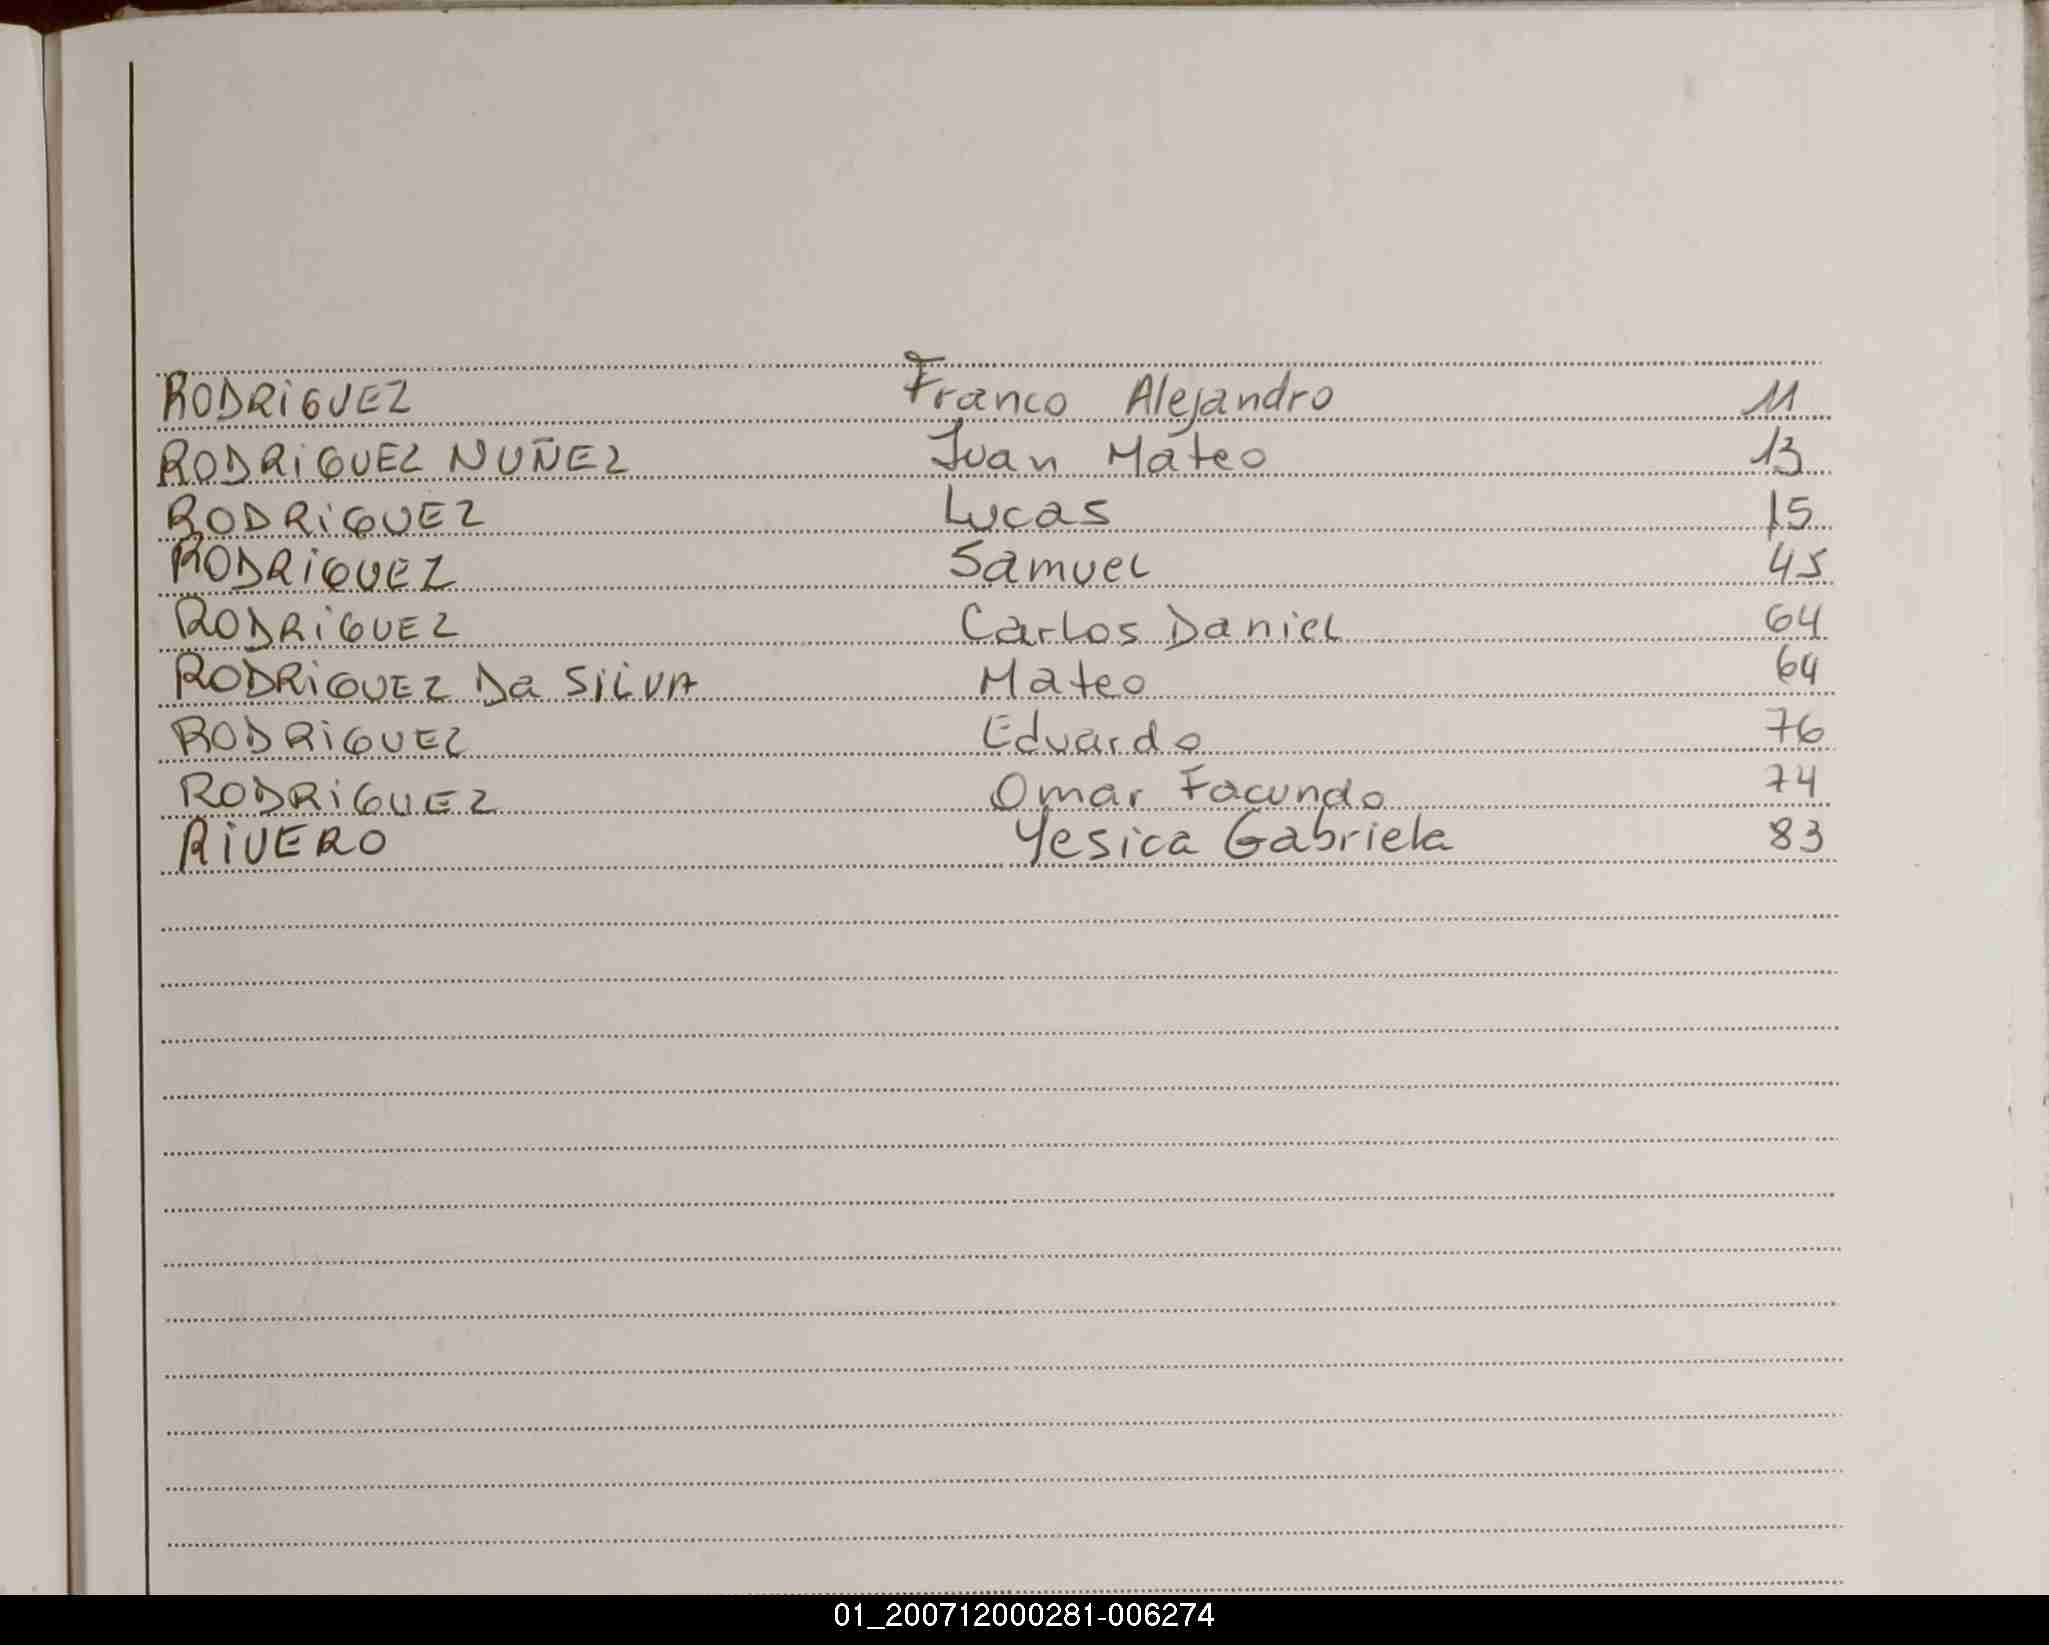 RODRIGUEZ Franco Alejandro 11
RODRIGUEZ NUÑEZ Juan Mateo 13
RODRIGUEZ Lucas 15
RODRIGUEZ Samuel 45
RODRIGUEZ Carlos Daniel 64
RODRIGUEZ Da SILVA Mateo 64
RODRIGUEZ Eduardo 76
RODRIGUEZ Omar Facundo 74
RIVERO Yesica Gabriela 83
01_200712000281-006274